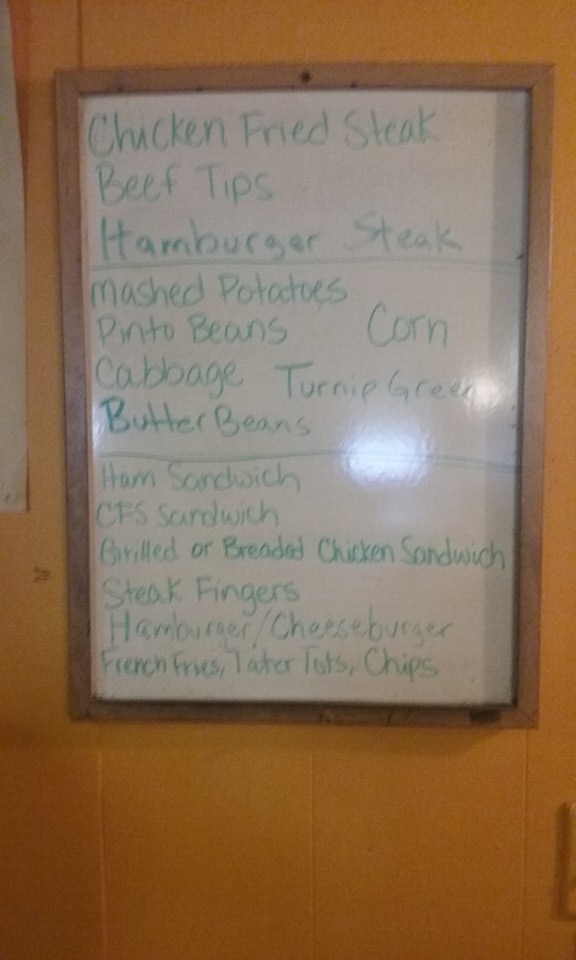 Chicken Fried Steak
Beef Tips
Hamburger Steak
Mashed Potatoes
Pinto Beans Corn
Cabbage Turnip Green
Butter Beans
Ham Sandwich
CFS Sandwich
Grilled or Breaded Chicken Sandwich
Steak Fingers
Hamburger/Cheeseburger
French Fries, Tater Tots, Chips